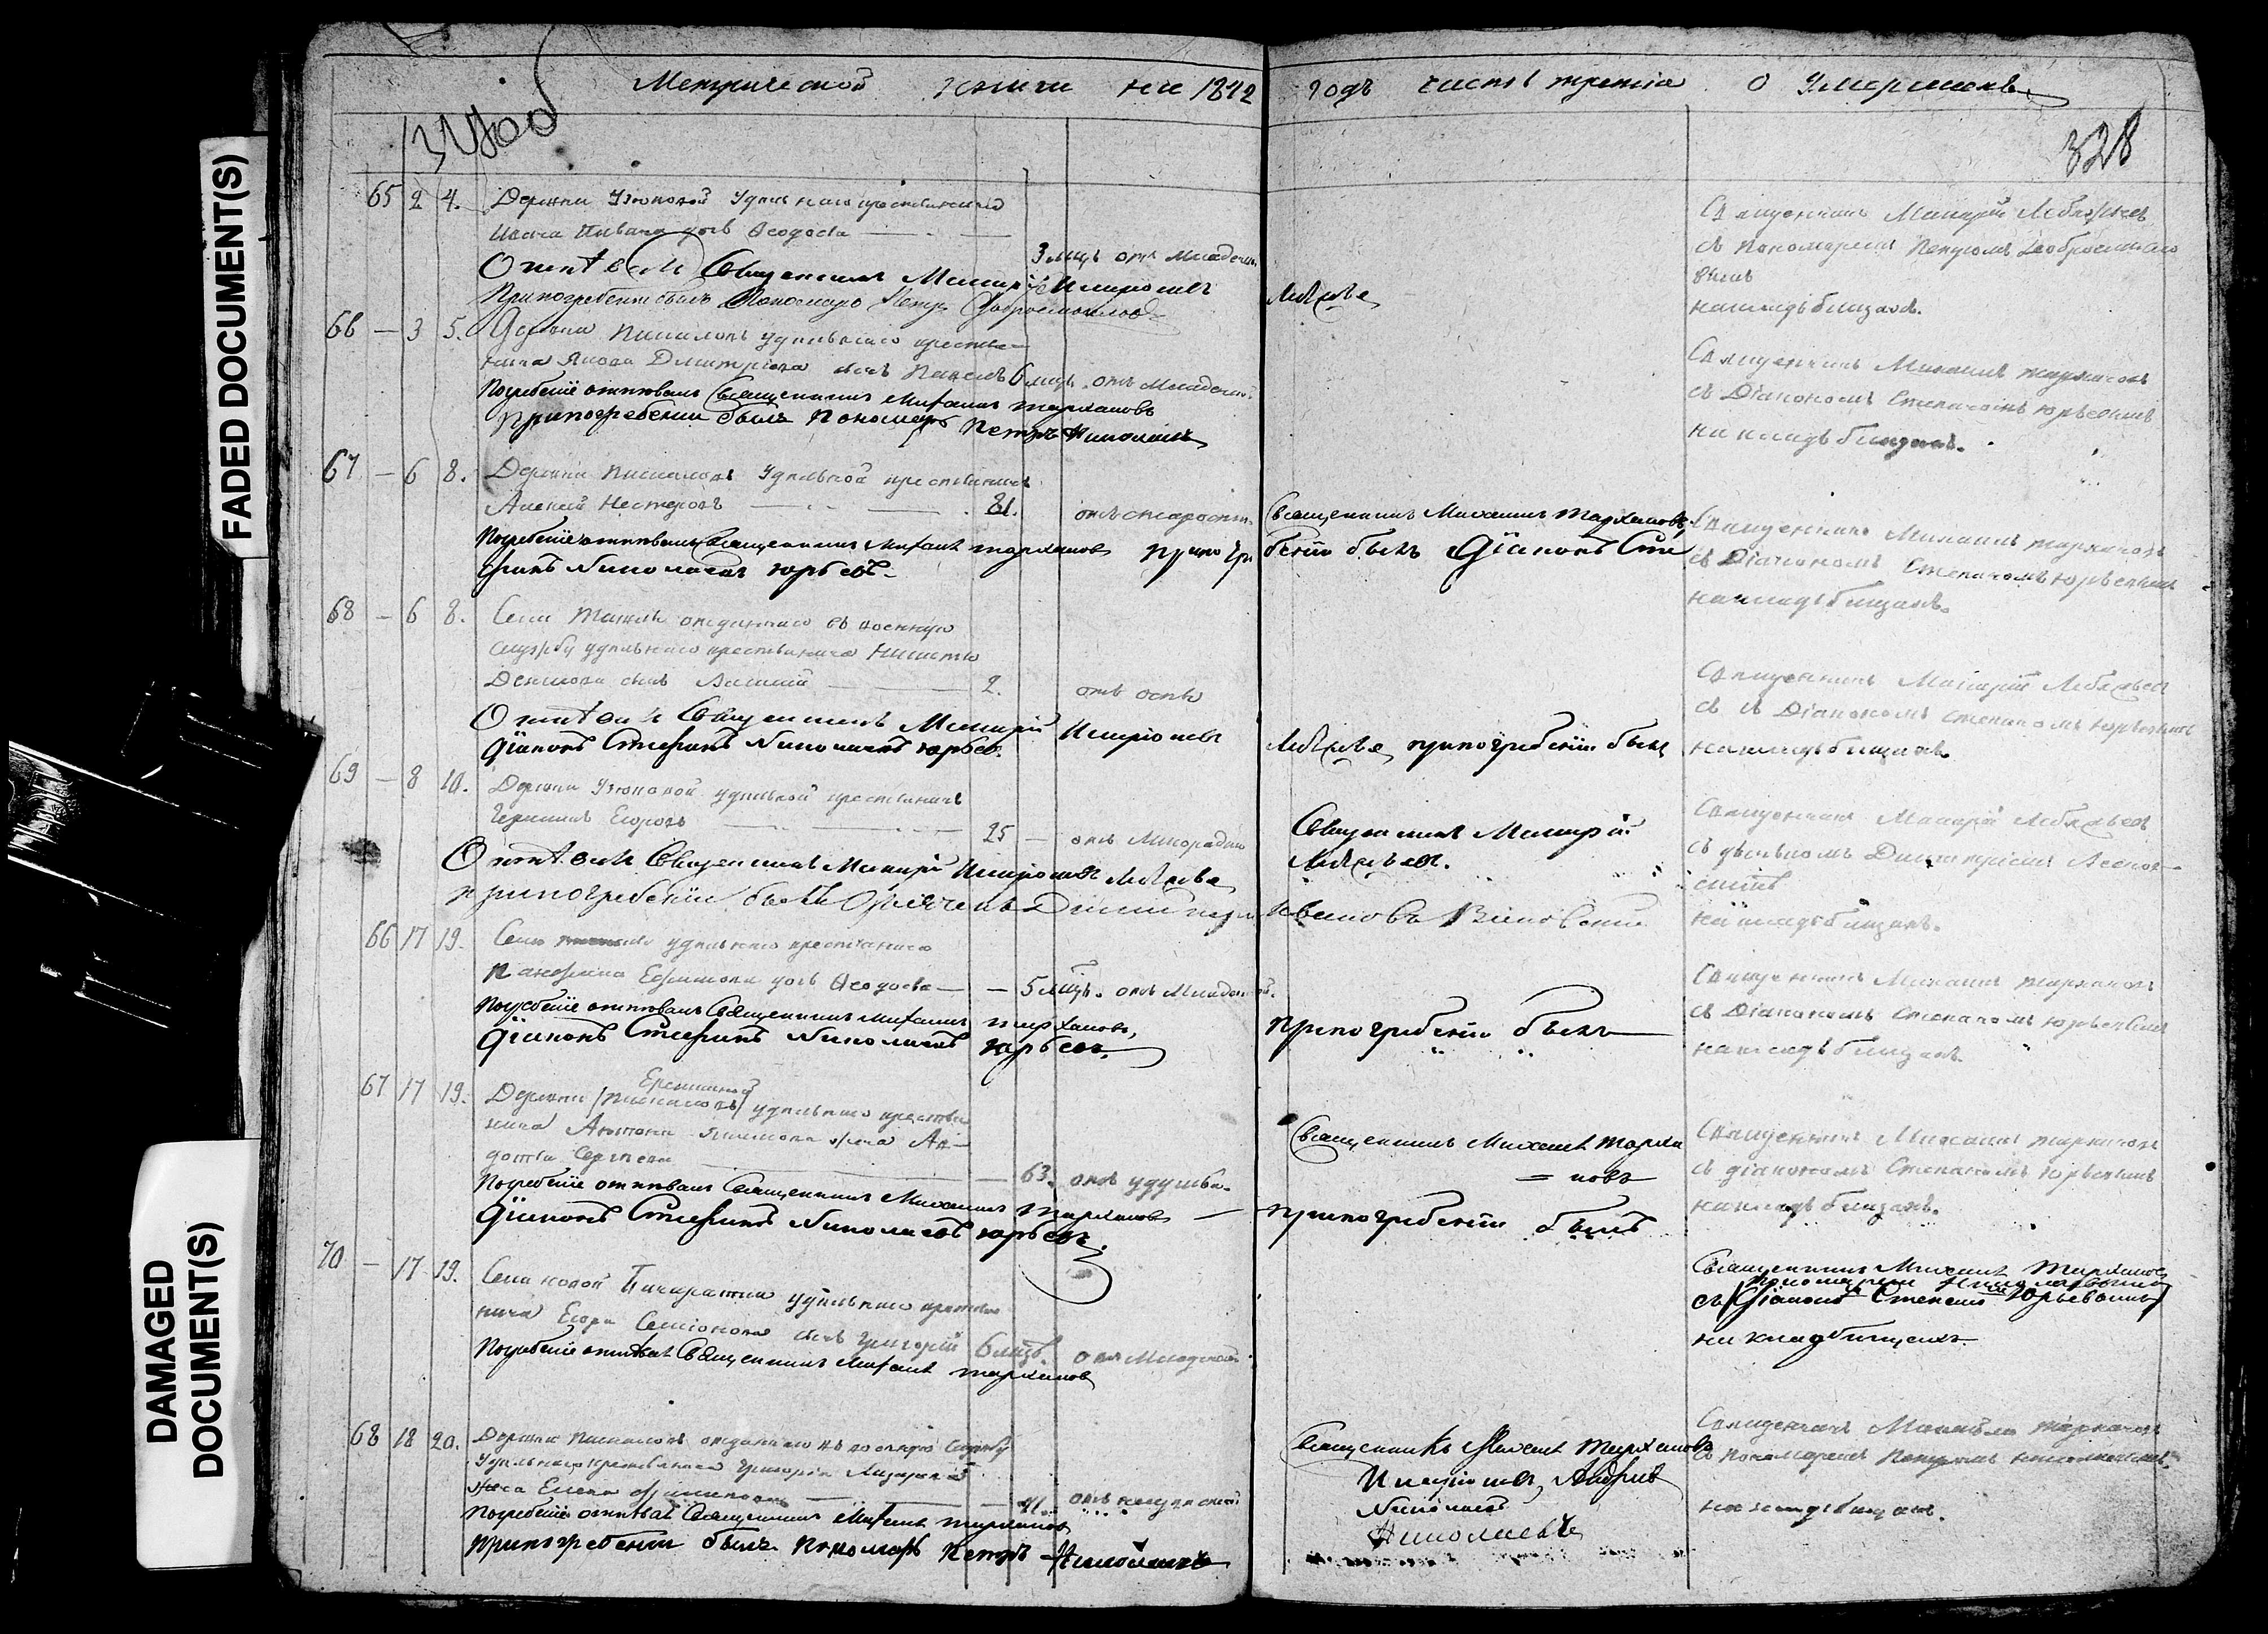 FADED DOCUMENT(S)
DAMAGED DOCUMENT(S)
Метрической книги на 1842 годъ часть третія о Умершихъ
328
65 2 4. Деревни Узюковой Удѣльнаго крестьянина
Ивана дочь Ѳеодосья
3 мцъ отъ младенч
Отпѣвалъ Священникъ Макарій Иларіоновъ Лебедевъ
При погребеніи былъ Пономарь Петръ Добросмысловъ
Священникъ Макарій Лебедевъ
съ Пономаремъ Петромъ Добросмысло
вымъ
на кладбищахъ.
66 — 3 5. Деревни Пискаловъ удѣльнаго крестья-
нина Якова Дмитріева сынъ Павелъ 6 мцъ. отъ младенч
Погребеніе отпѣвалъ Священникъ Михаилъ Тарханов
При погребеніи былъ Пономарь Петръ Николаевъ
Священникъ Михаилъ Тархановъ
съ Діакономъ Степаномъ Юрьевымъ
на кладбищахъ.
67 — 6 8. Деревни Пискаловъ Удѣльной крестьянинъ
Алексѣй Нестеровъ 81. отъ старости
Погребеніе отпѣвалъ Священникъ Михаилъ Тархановъ при погре
беніи былъ Діаконъ Сте
фанъ Николаевъ Юрьевъ
Священникъ Михаилъ Тархановъ
Священникъ Михаилъ Тархановъ
съ Діакономъ Степаномъ Юрьевымъ
на кладбищахъ.
68 — 6 8. Села отданнаго въ военную
службу удѣльнаго крестьянина Никиты
Денисова сынъ 2. отъ оспы
Отпѣвалъ Священникъ Макарій Иларіоновъ Лебедевъ при погребеніи былъ
Діаконъ Стефанъ Николаевъ Юрьевъ.
Священникъ Макарій Лебедевъ
съ съ Діакономъ Степаномъ Юрьевымъ
на кладбищахъ.
69 — 8 10. Деревни Узюковой удѣльной крестьянинъ
Егоровъ 25 — отъ лихорадки
Отпѣвалъ Священникъ Макарій Иларіоновъ Лебедевъ
при погребеніи былъ Дмитрій Ивановъ
Священникъ Макарій
Лебедевъ.
Священникъ Макарій Лебедевъ
съ дьячкомъ Дмитріемъ
на кладбищахъ.
66 17 19. Села удѣльнаго крестьянина
Ефимова дочь Ѳеодосья — — 5 мцъ. отъ младенч
Погребеніе отпѣвалъ Священникъ Михаилъ Тархановъ,
Діаконъ Стефанъ Николаевъ Юрьевъ.
при погребеніи былъ
Священникъ Михаилъ Тархановъ
съ Діакономъ Степаномъ Юрьевымъ
на кладбищахъ.
67 17 19. Деревни (Пискаловъ) удѣльнаго крестья
нина жена Ав-
дотья Сергѣева — 63. отъ удушья.
Погребеніе отпѣвалъ Священникъ Михаилъ Тархановъ
Діаконъ Стефанъ Николаевъ Юрьевъ.
Священникъ Михаилъ Тарха
= новъ
при погребеніи былъ
Священникъ Михаилъ Тархановъ
съ діакономъ Степаномъ Юрьевымъ
на кладбищахъ.
70 — 17 19. Села новой удѣльнаго крестья
нина Егора Семіонова сынъ Григорій 6 мцъ. отъ младенч
Погребеніе отпѣвалъ Священникъ Михаилъ Тарханов
Священникъ Михаилъ Тархановъ
съ Діакономъ Степаномъ Юрьевымъ
на кладбищахъ.
68 18 20. Деревни Пискаловъ отданнаго въ военную службу
Удѣльнаго крестьянина Григорія Лазарева
жена Елена 41. отъ
Погребеніе отпѣвалъ Священникъ Михаилъ Тархановъ
При погребеніи былъ Пономарь Петръ Николаевъ
Священникъ Михаилъ Тархановъ
Николаевъ
Священникъ Михаилъ Тархановъ
съ Пономаремъ Петромъ
на кладбищахъ.